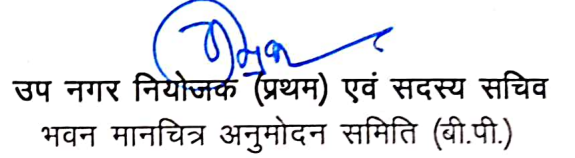 उप नगर नियोजक (प्रथम) एवं सदस्य सचिव
भवन मानचित्र अनुमोदन समिति (बी.पी.)